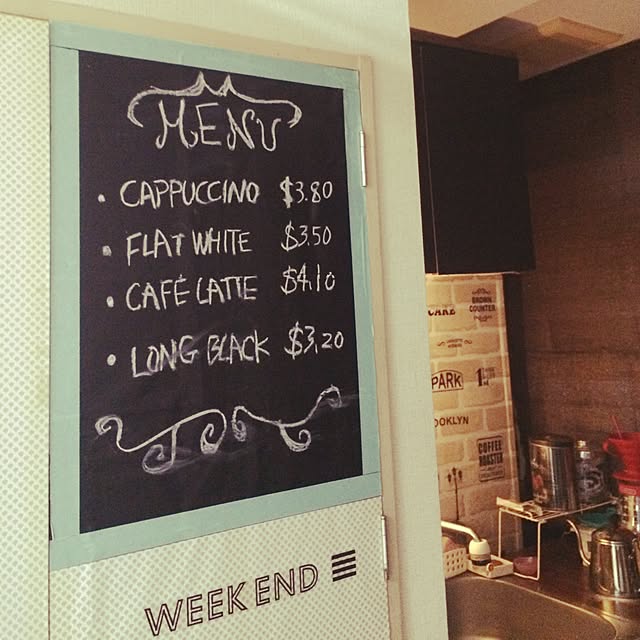 MENU
• CAPPUCCINO $3.80
• FLAT WHITE $3.50
• CAFÉ LATTE $4.10
• LONG BLACK $3.20
WEEKEND
CAKE
BROWN
COUNTER
PARK
OOKLYN
COFFEE
ROASTER